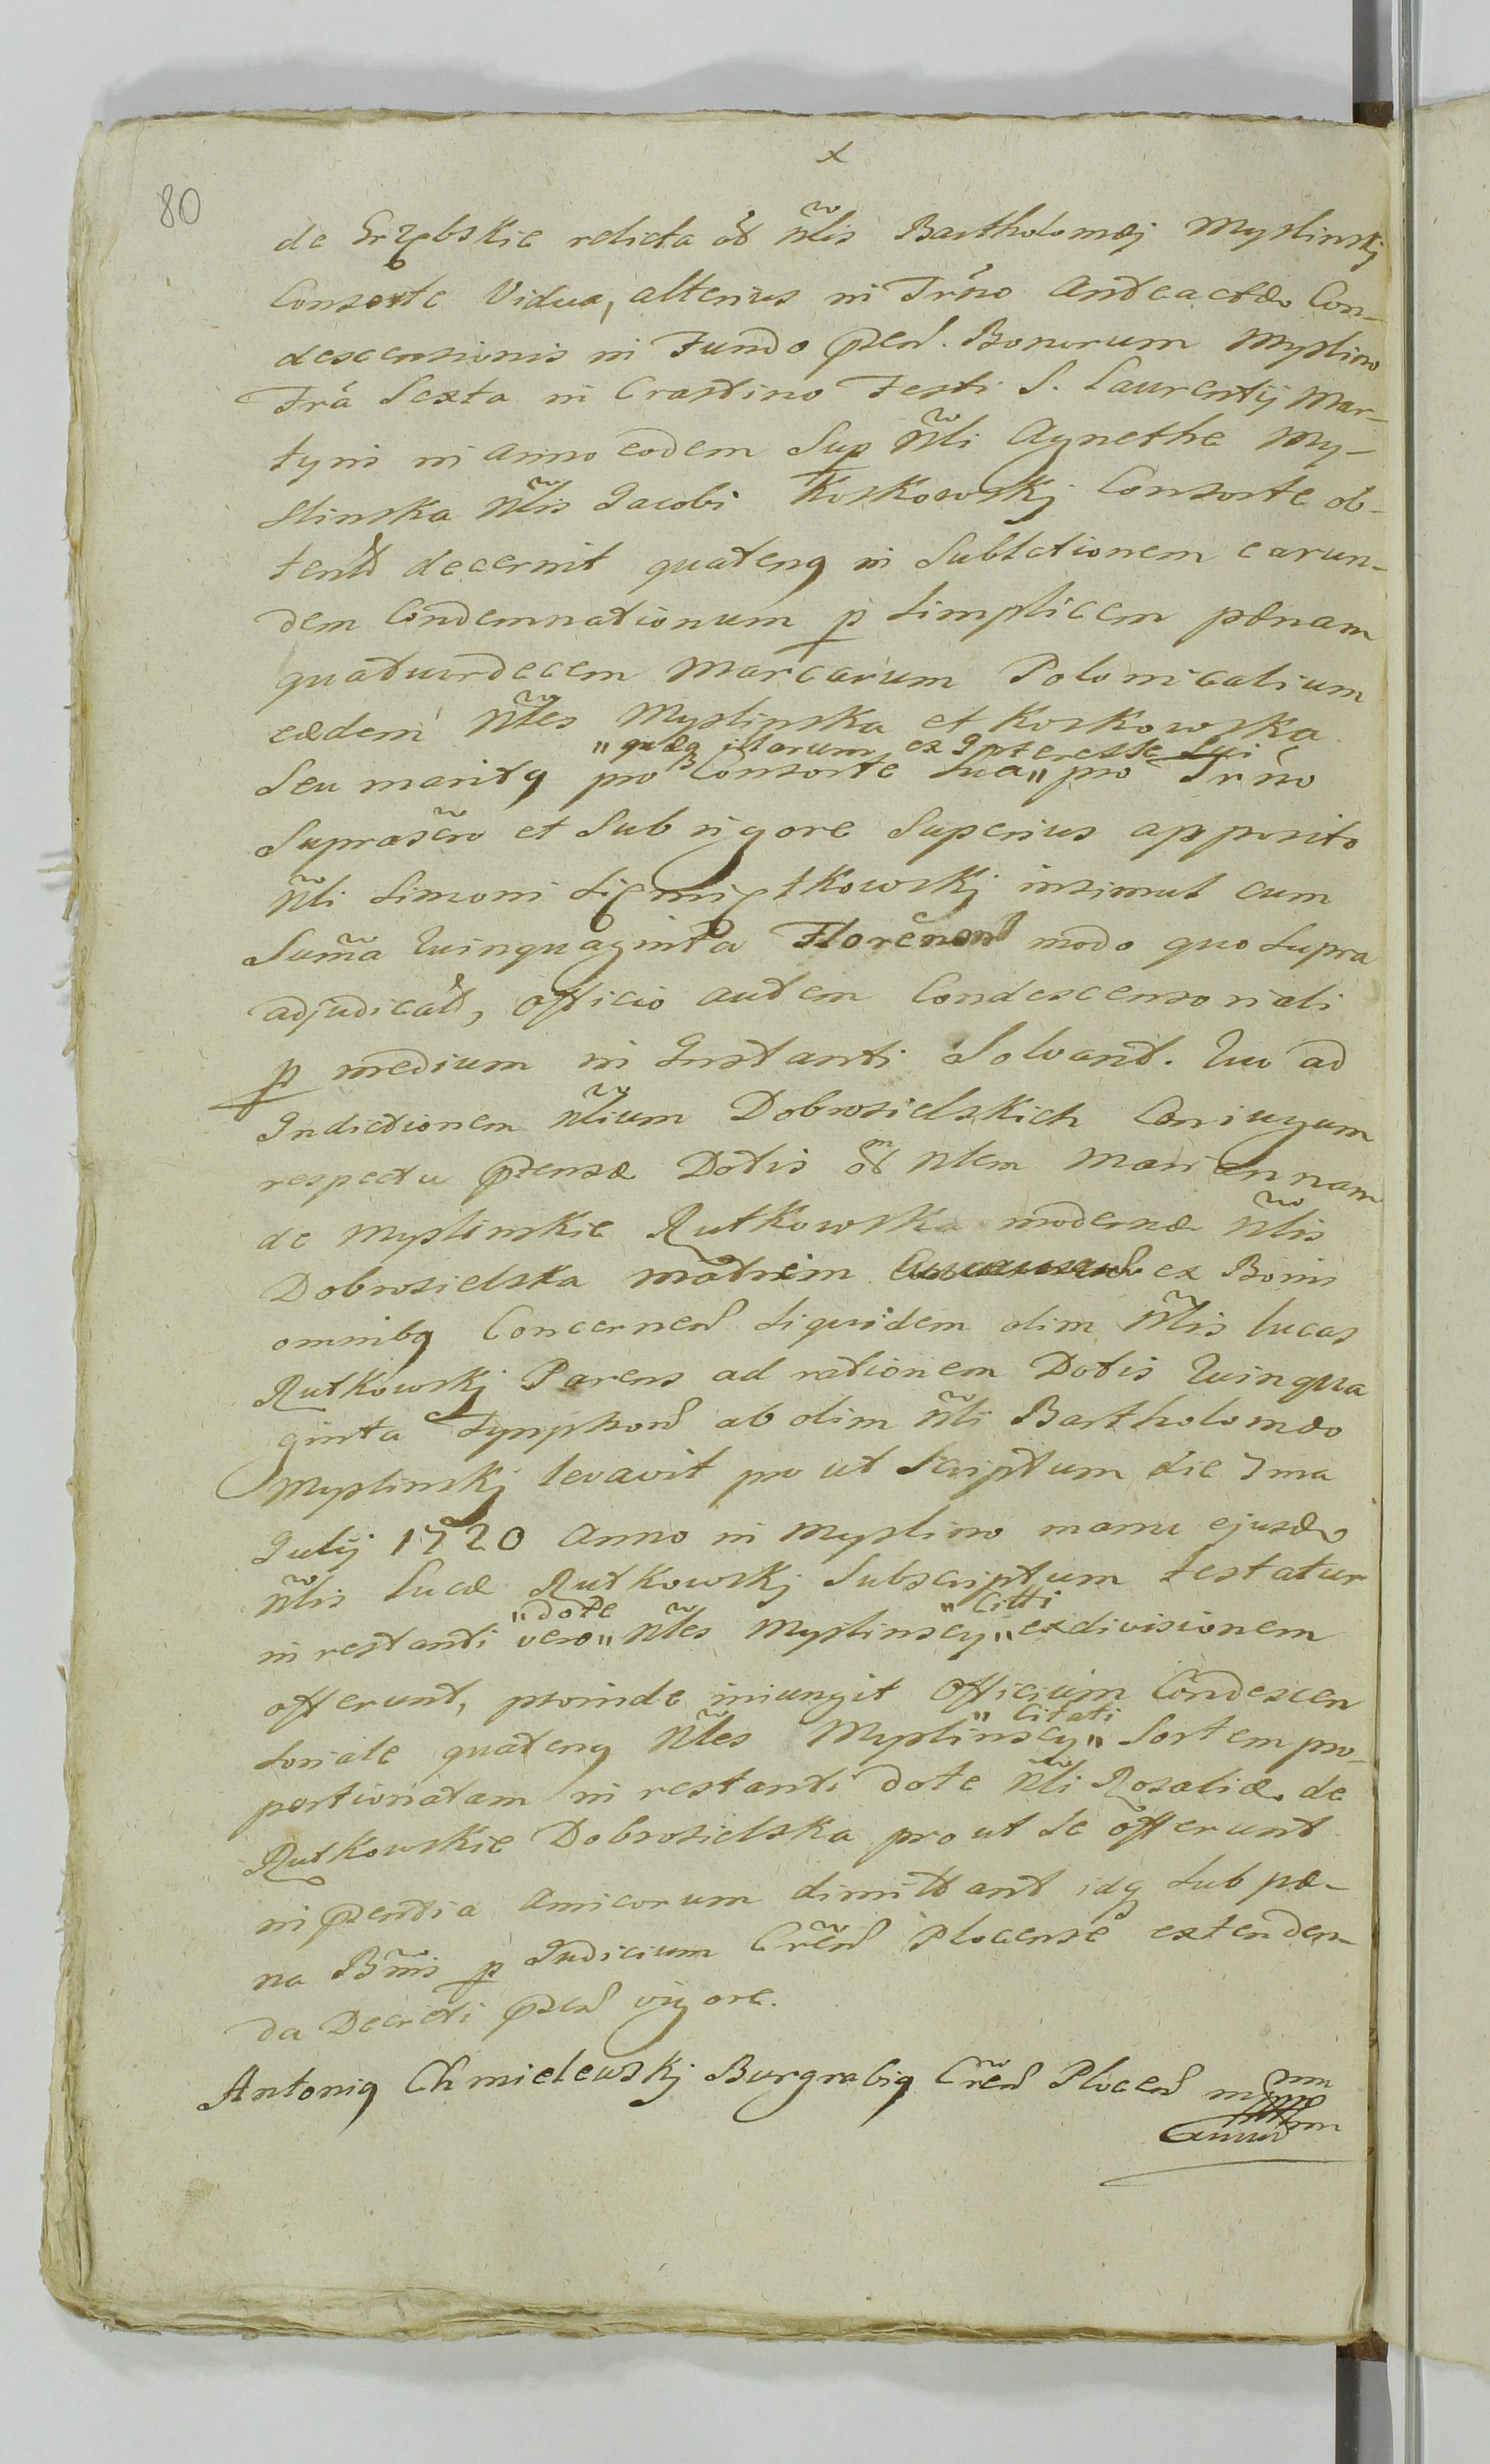 x
80
de Grzębskie relicta olī Nlis Bartholomæj Myslinskj
Consorte Vidua, alterius in Trno Anteactæo Con-
descensionis in Fundo pzen. Bonorum Myslino
Fra Sexta in Crastino Festi S. Laurentij Mar-
tyris in Anno eodem Sup Nli Agnethe My-
slinska Nlis Jacobi Koskowskj Consorte ob-
tent decernit quatenq in Sublationem earun-
dem Condemnationum p simplicem pænam
quatuordecem Marcarum Polonicalium
eædem Nles Myslinska et Koskowska
"quæq illarum ex Interesse Sui
Seu maritq pro Consorte Sua" pro Trno
Suprascro et Sub rigore Superius apposito
Nli Simoni Siemiętkowskj insimul cum
Suma Quinquaginta Florenon modo quo Supra
adjudicat, Officio autem Condescensoriali
p medium in Instanti Solvant. Quo ad
Indictionem Nlium Dobrosielskich Coniugum
respectu pzensæ Dotis Nlem Mariannam
de Myslinskie Rutkowska modernæ Nlis
Dobrosielska Matrem ex Bonis
omnibq Concernen siquidem olim Nlis Lucas
Rutkowskj Parens ad rationem Dotis Quinqua
ginta Tynphon ab olim Nli Bartholomæo
Myslinskj levavit prout Scriptum die 7ma
Julij 1720 Anno in Myslino manu ejusdo
Nlis Lucæ Rutkowskj Subscriptum testatur
"dote "Citti
in restanti vero" Nles Myslinscy" exdivisionem
offerunt, proinde iniungit Officium Condescen
"Citati
soriale quatenq Nles Myslinscy" Sortem pro-
portionatam in restanti dote Nli Rosaliæ de
Rutkowskie Dobrosielska prout se offerunt
in pzentia Amicorum dimittant idq sub pæ-
na Bnis p Indicium Cren Plocense extenden-
da Decreti pzen vigore.
Antoniq Chmielewskj Burgrabiq Cren Plocen